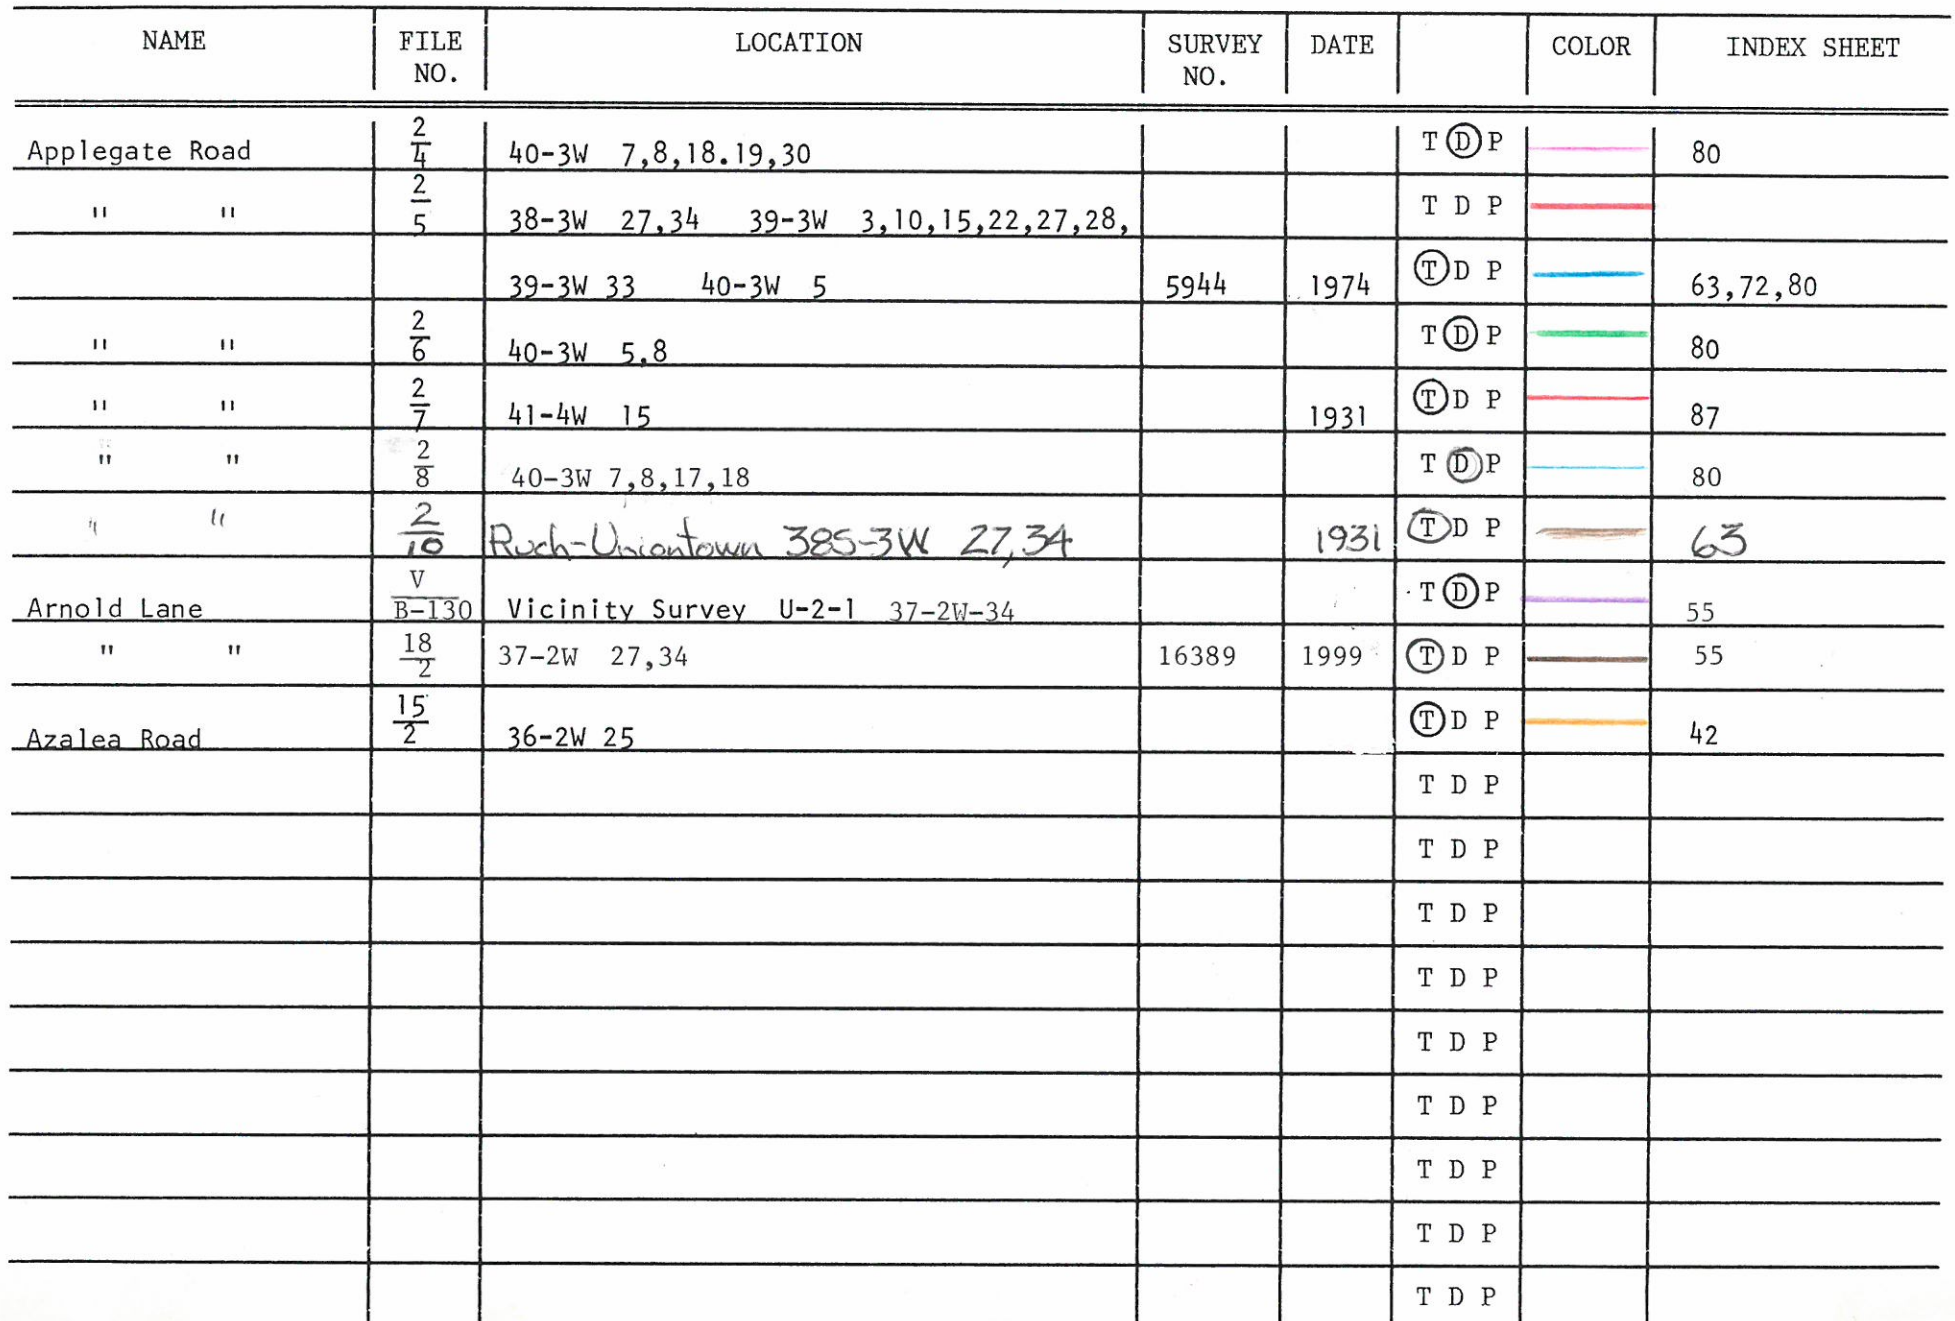 NAME FILE NO. LOCATION SURVEY NO. DATE COLOR INDEX SHEET
Applegate Road 2/4 40-3W 7,8,18.19,30 T D P 80
" " 2/5 38-3W 27,34 39-3W 3,10,15,22,27,28, T D P
39-3W 33 40-3W 5 5944 1974 T D P 63,72,80
" " 2/6 40-3W 5,8 T D P 80
" " 2/7 41-4W 15 1931 T D P 87
" " 2/8 40-3W 7,8,17,18 T D P 80
" " 2/10 Ruch-Uniontown 38S-3W 27,34 1931 T D P 63
Arnold Lane V/B-130 Vicinity Survey U-2-1 37-2W-34 T D P 55
" " 18/2 37-2W 27,34 16389 1999 T D P 55
Azalea Road 15/2 36-2W 25 T D P 42
T D P
T D P
T D P
T D P
T D P
T D P
T D P
T D P
T D P